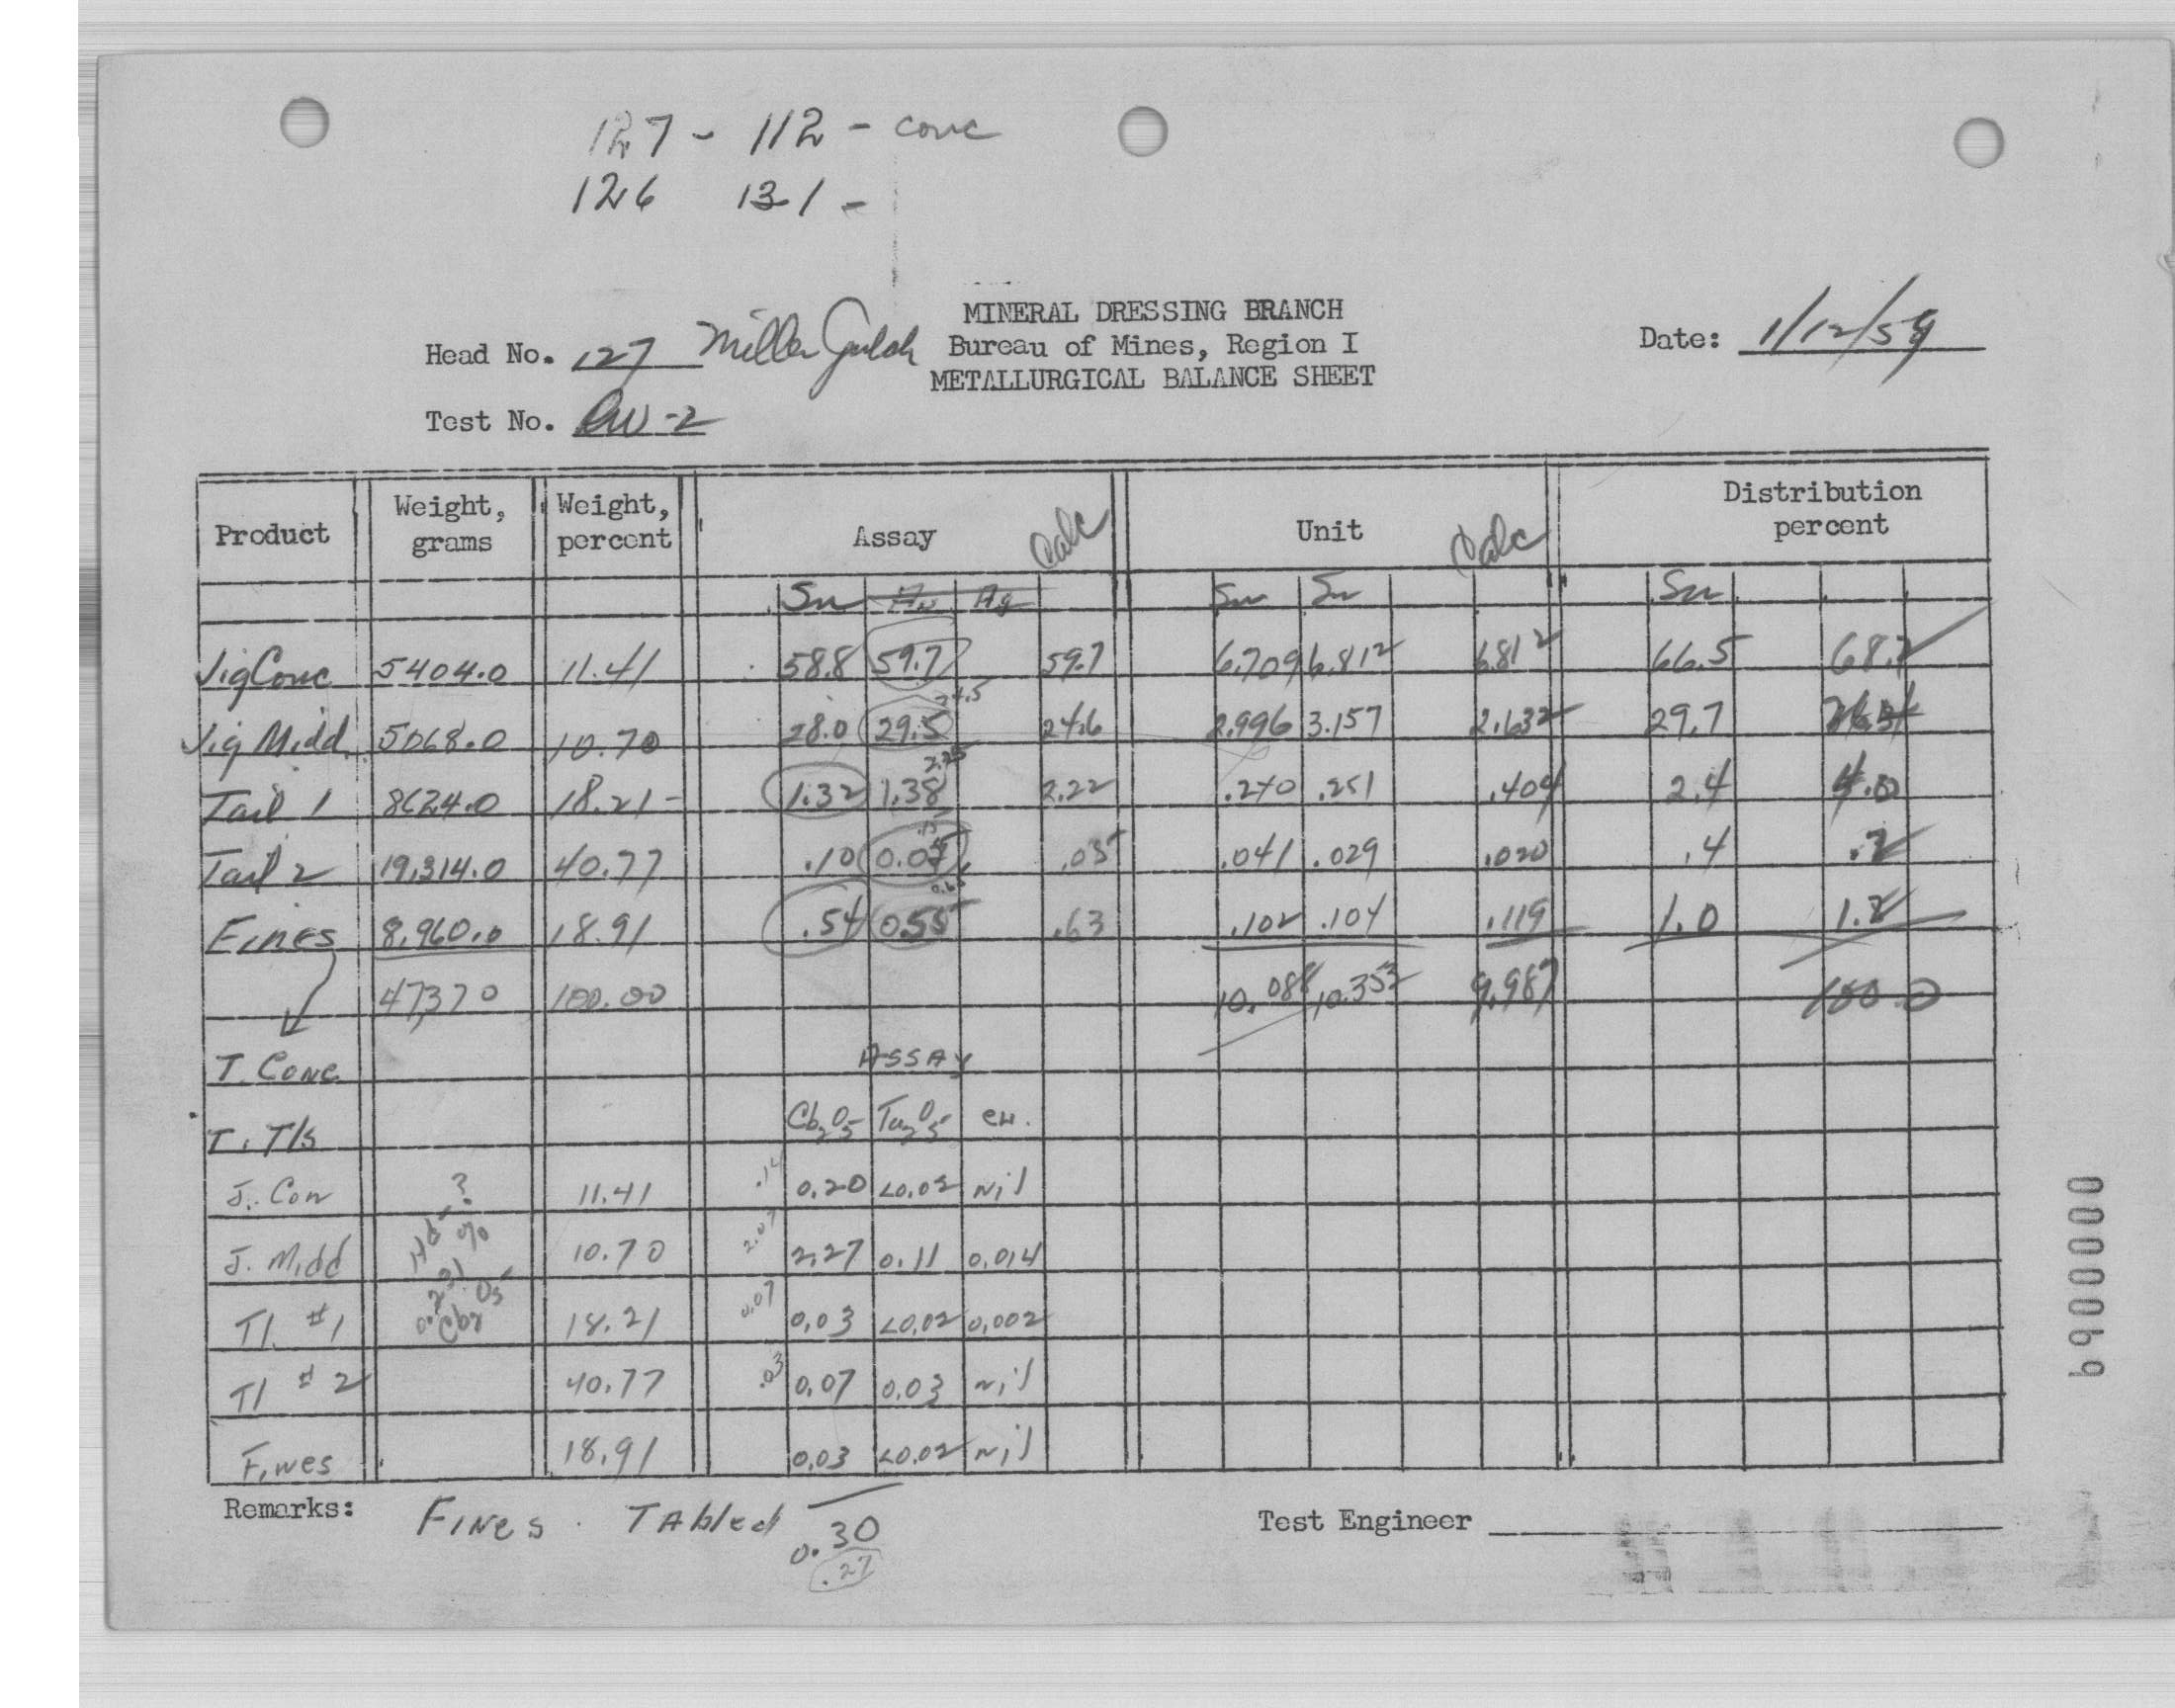 127 - 112 - conc
126 131 -
MINERAL DRESSING BRANCH
Head No. 127 Miller Gulch Bureau of Mines, Region I Date: 1/12/59
METALLURGICAL BALANCE SHEET
Test No. RW-2
Product Weight, grams Weight, percent Assay Calc Unit Calc Distribution percent
Sn Au Ag Sn Sn Sn
Jig Conc 5404.0 11.41 58.8 59.7 59.7 6.709 6.812 6.812 66.5 68.2
24.5
Jig Midd 5068.0 10.70 28.0 29.5 24.6 2.996 3.157 2.632 29.7
2.25
Tail 1 8624.0 18.21- 1.32 1.38 2.22 .240 .251 .404 2.4 4.0
Tail 2 19,314.0 40.77 .10 0.07 .05 .041 .029 .020 .4 .2
Fines 8,960.0 18.91 .54 0.55 .63 .102 .104 .119 1.0 1.2
47370 100.00 10.088 10.353 9.987 100.0
T. Conc Assay
T. Tls Cb2O5 Ta2O5 eu.
J. Con ? 11.41 .14 0.20 <0.02 Nil
J. Midd Hd - % 10.70 2.07 2.27 0.11 0.014
Tl. #1 0.231 Cb2O5 18.21 0.07 0.03 <0.02 0.002
Tl #2 40.77 .03 0.07 0.03 Nil
Fines 18.91 0.03 <0.02 Nil
Remarks: Fines Tabled 0.30 Test Engineer
.27
0000069